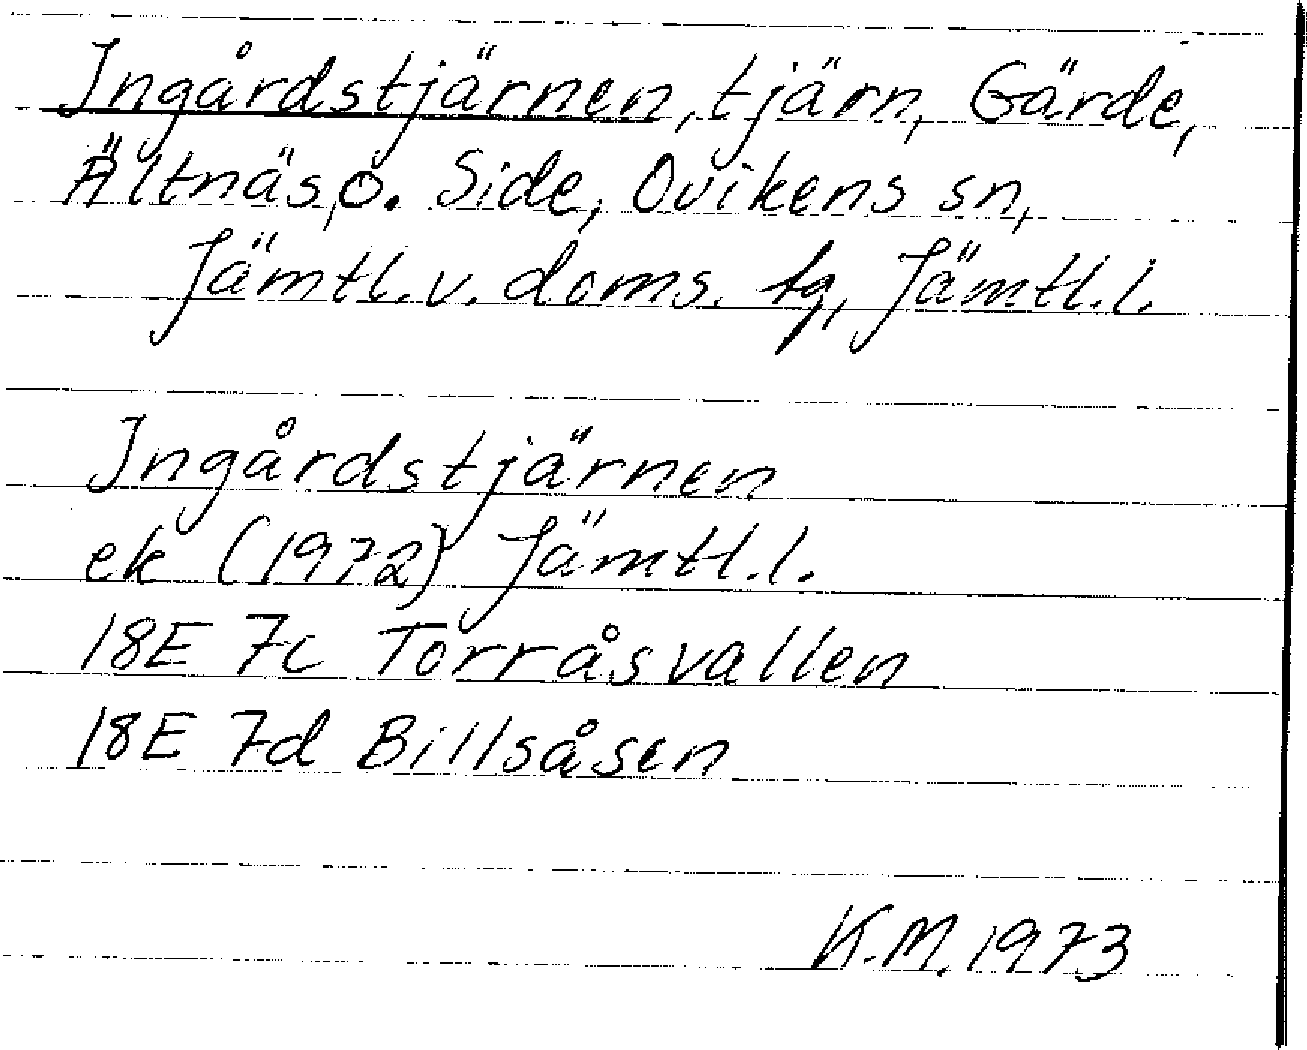 Ingårdstjärnen, tjärn, Gärde,
Ältnäs, o. Side, Ovikens sn,
Jämtl. v. doms. tg, Jämtl. l.
Ingårdstjärnen
ek (1972) Jämtl. l.
18E 7c Torråsvallen
18E 7d Billsåsen
K.M. 1973